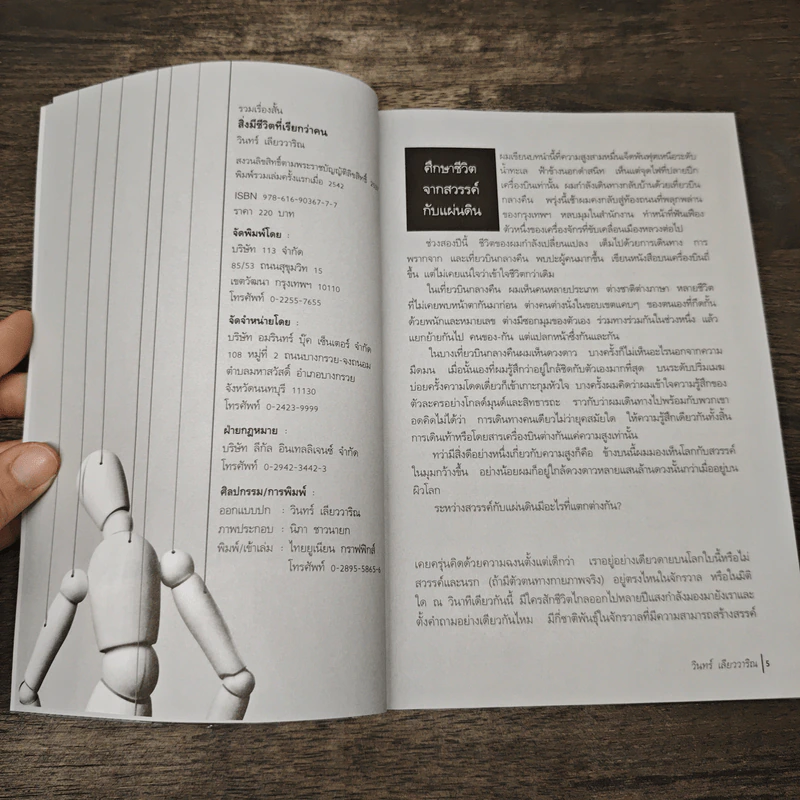 รวมเรื่องสั้น
สิ่งมีชีวิตที่เรียกว่าคน
วินทร์ เลียววาริณ
สงวนลิขสิทธิ์ตามพระราชบัญญัติลิขสิทธิ์
พิมพ์รวมเล่มครั้งแรกเมื่อ 2542
ISBN 978-616-90367-7-7
ราคา 220 บาท
จัดพิมพ์โดย :
บริษัท 113 จำกัด
85/53 ถนนสุขุมวิท 15
เขตวัฒนา กรุงเทพฯ 10110
โทรศัพท์ 0-2255-7655
จัดจำหน่ายโดย :
บริษัท อมรินทร์ บุ๊ค เซ็นเตอร์ จำกัด
108 หมู่ที่ 2 ถนนบางกรวย-จงถนอม
ตำบลมหาสวัสดิ์ อำเภอบางกรวย
จังหวัดนนทบุรี 11130
โทรศัพท์ 0-2423-9999
ฝ่ายกฎหมาย :
บริษัท ลีกัล อินเทลลิเจนซ์ จำกัด
โทรศัพท์ 0-2942-3442-3
ศิลปกรรม/การพิมพ์ :
ออกแบบปก : วินทร์ เลียววาริณ
ภาพประกอบ : นิภา ชาวนายก
พิมพ์/เข้าเล่ม : ไทยยูเนียน กราฟฟิกส์
โทรศัพท์ 0-2895-5865-6
ศึกษาชีวิต
จากสวรรค์
กับแผ่นดิน
ผมเขียนบทหน้านี้ที่ความสูงสามหมื่นเจ็ดพันฟุตเหนือระดับ
น้ำทะเล ฟ้าข้างนอกดำสนิท เห็นแต่จุดไฟที่ปลายปีก
เครื่องบินเท่านั้น ผมกำลังเดินทางกลับบ้านด้วยเที่ยวบิน
กลางคืน พรุ่งนี้เช้าผมคงกลับสู่ท้องถนนที่พลุกพล่าน
ของกรุงเทพฯ หลบมุมในสำนักงาน ทำหน้าที่ฟันเฟือง
ตัวหนึ่งของเครื่องจักรที่ขับเคลื่อนเมืองหลวงต่อไป
ช่วงสองปีนี้ ชีวิตของผมกำลังเปลี่ยนแปลง เต็มไปด้วยการเดินทาง การ
พรากจาก และเที่ยวบินกลางคืน พบปะผู้คนมากขึ้น เขียนหนังสือบนเครื่องบินถี่
ขึ้น แต่ไม่เคยแน่ใจว่าเข้าใจชีวิตกว่าเดิม
ในเที่ยวบินกลางคืน ผมเห็นคนหลายประเภท ต่างชาติต่างภาษา หลายชีวิต
ที่ไม่เคยพบหน้าตากันมาก่อน ต่างคนต่างนั่งในขอบเขตแคบๆ ของตนเองที่กีดกั้น
ด้วยพนักและหมายเลข ต่างมีซอกมุมของตัวเอง ร่วมทางร่วมกันในช่วงหนึ่ง แล้ว
แยกย้ายกันไป คนของ-กัน แต่แปลกหน้าซึ่งกันและกัน
ในบางเที่ยวบินกลางคืนผมเห็นดวงดาว บางครั้งก็ไม่เห็นอะไรนอกจากความ
มืดมน เมื่อนั้นเองที่ผมรู้สึกว่าอยู่ใกล้ชิดกับตัวเองมากที่สุด บนระดับปริ่มเมฆ
บ่อยครั้งความโดดเดี่ยวก็เข้าเกาะกุมหัวใจ บางครั้งผมคิดว่าผมเข้าใจความรู้สึกของ
ตัวละครอย่างโกลด์มุนด์และสิทธารถะ ราวกับว่าผมเดินทางไปพร้อมกับพวกเขา
อดคิดไม่ได้ว่า การเดินทางคนเดียวไม่ว่ายุคสมัยใด ให้ความรู้สึกเดียวกันทั้งสิ้น
การเดินเท้าหรือโดยสารเครื่องบินต่างกันแค่ความสูงเท่านั้น
ทว่ามีสิ่งดีอย่างหนึ่งเกี่ยวกับความสูงก็คือ ข้างบนนี้ผมมองเห็นโลกกับสวรรค์
ในมุมกว้างขึ้น อย่างน้อยผมก็อยู่ใกล้ดวงดาวหลายแสนล้านดวงนั้นกว่าเมื่ออยู่บน
ผิวโลก
ระหว่างสวรรค์กับแผ่นดินมีอะไรที่แตกต่างกัน?
เคยครุ่นคิดด้วยความฉงนตั้งแต่เด็กว่า เราอยู่อย่างเดียวดายบนโลกใบนี้หรือไม่
สวรรค์และนรก (ถ้ามีตัวตนทางกายภาพจริง) อยู่ตรงไหนในจักรวาล หรือในมิติ
ใด ณ วินาทีเดียวกันนี้ มีใครสักชีวิตไกลออกไปหลายปีแสงกำลังมองมายังเราและ
ตั้งคำถามอย่างเดียวกันไหม มีกี่ชาติพันธุ์ในจักรวาลที่มีความสามารถสร้างสวรรค์
วินทร์ เลียววาริณ 5